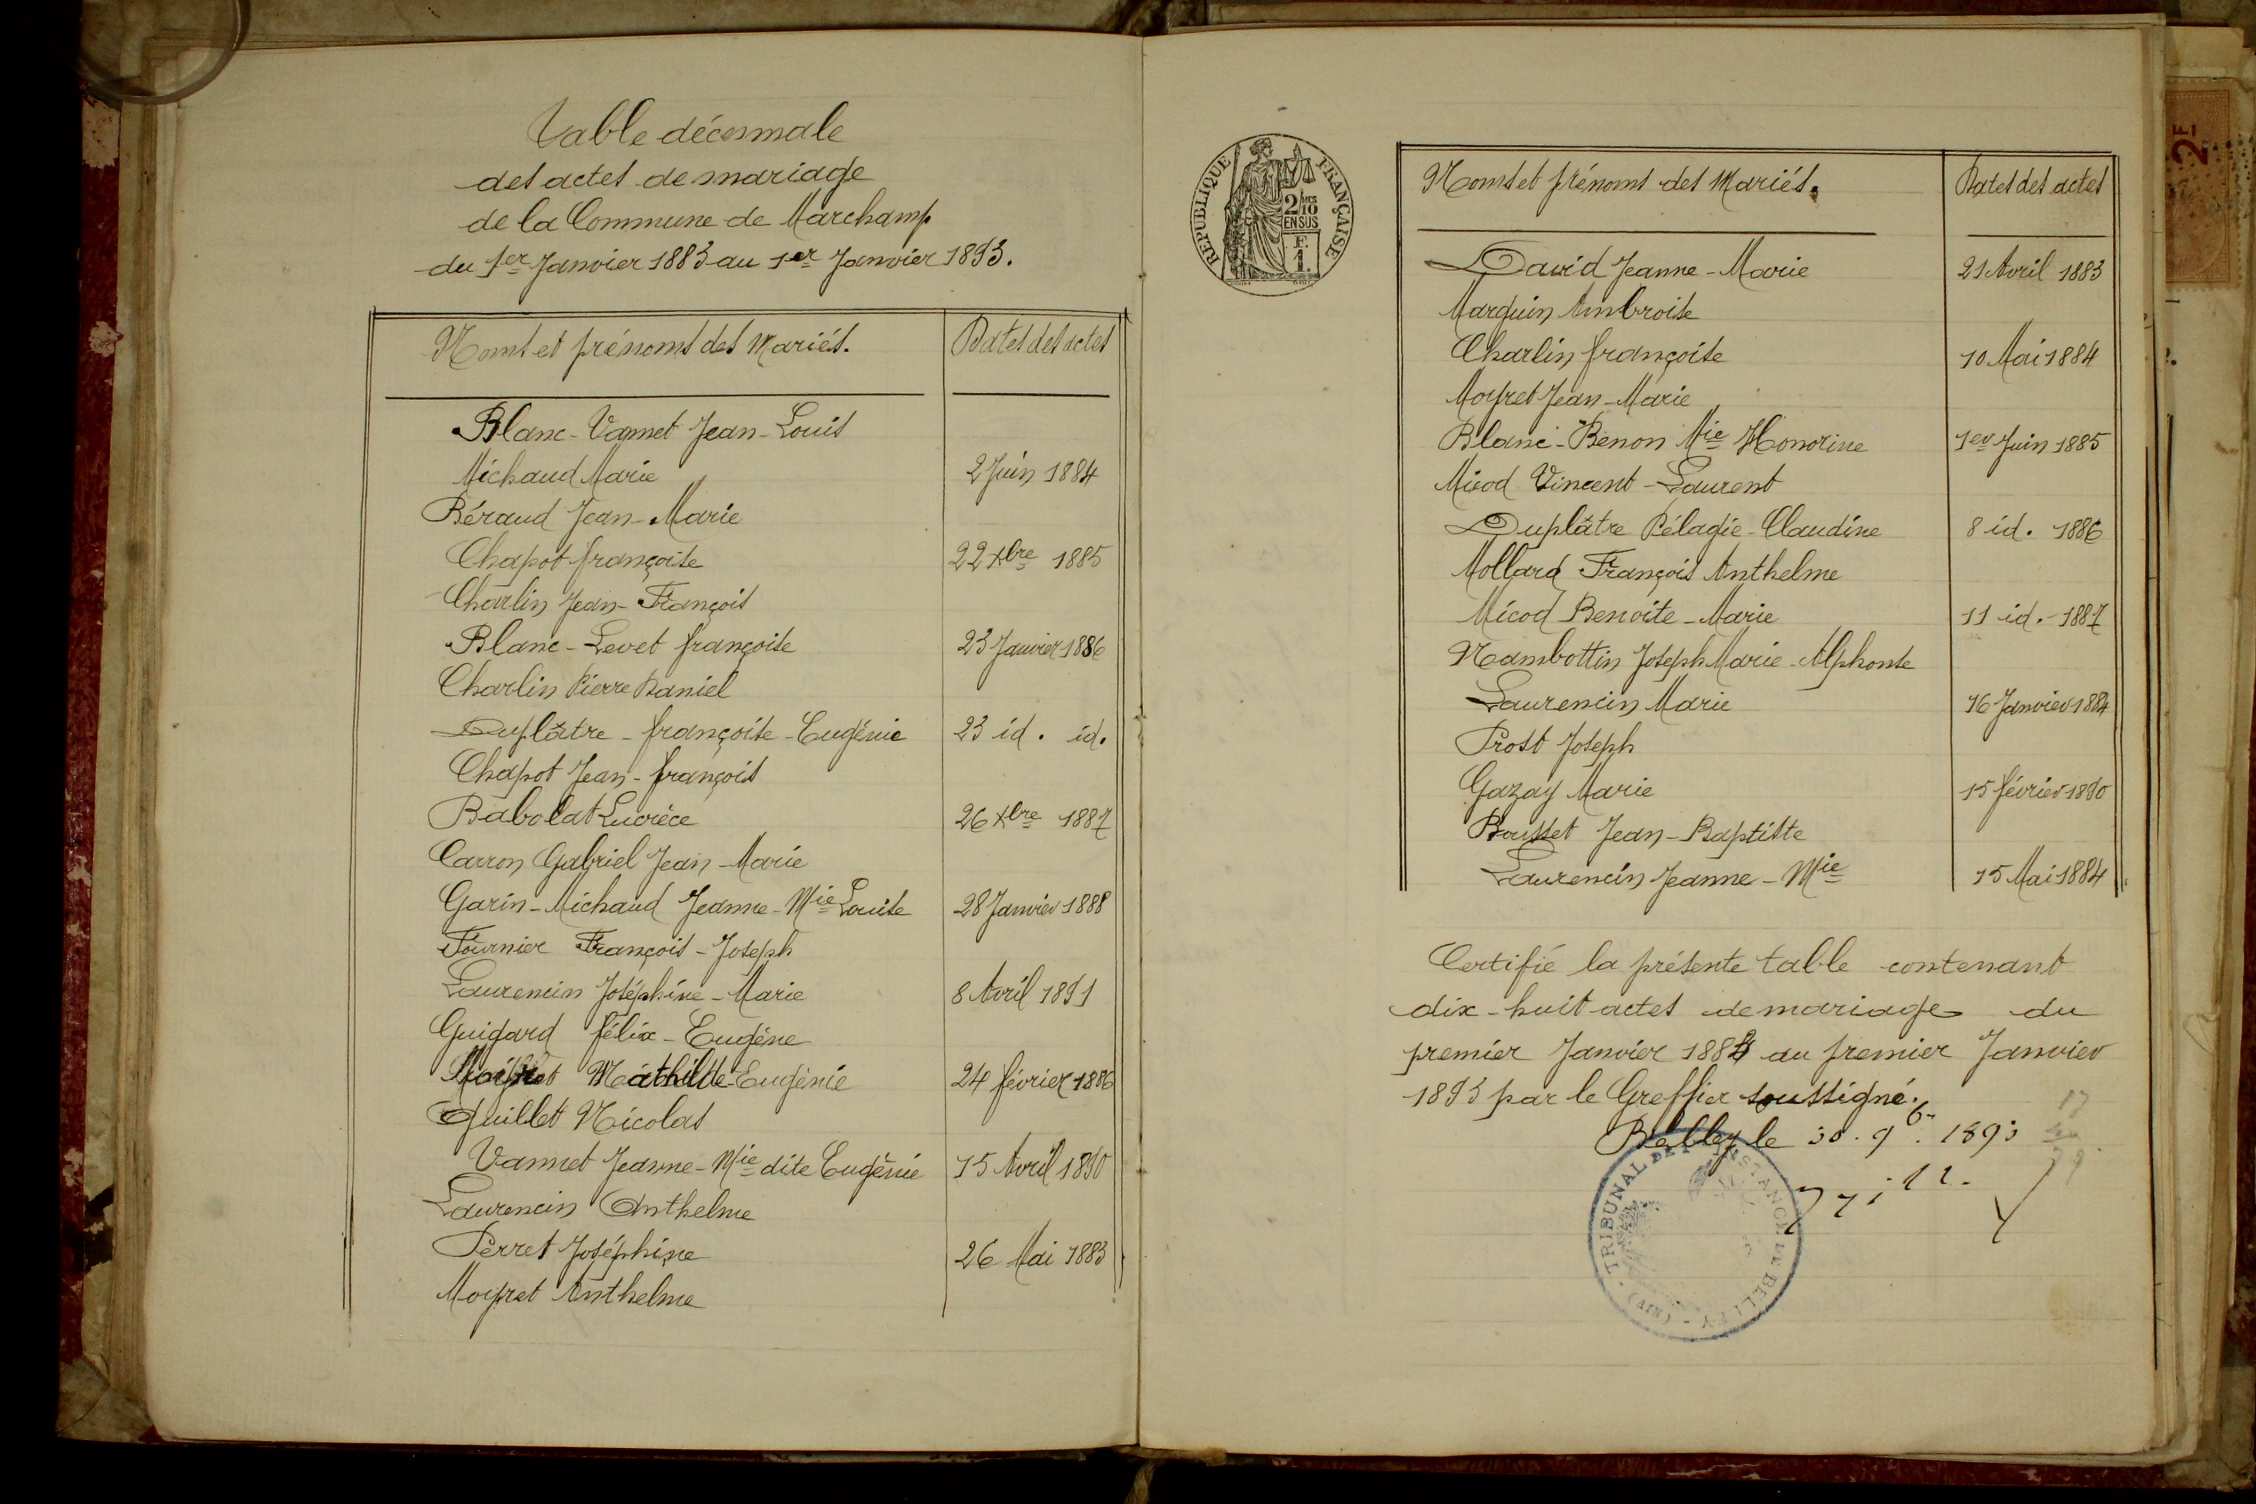 Table décennale
des actes de mariage
de la Commune de Marchamp
du 1er Janvier 1883 au 1er Janvier 1893.
Noms et prénoms des Mariés. Dates des actes
Blanc-Vannet Jean-Louis
Michaud Marie 2 Juin 1884
Béraud Jean-Marie
Chapot françoise 22 Xbre 1885
Charlin Jean-François
Blanc-Levet françoise 23 Janvier 1886
Charlin Pierre Daniel
Duplâtre-françoise-Eugénie 23 id. id.
Chapot Jean-françois
Babolat Lucrèce 26 Xbre 1887
Carron Gabriel Jean-Marie
Garin-Michaud Jeanne-Mie Louise 28 Janvier 1888
Fournier François-Joseph
Laurencin Joséphine-Marie 8 Avril 1891
Guigard félix-Eugène
Mathilde-Eugénie 24 février 1886
Quillet Nicolas
Vannet Jeanne-Mie dite Eugénie 15 Avril 1890
Laurencin Anthelme
Perret Joséphine 26 Mai 1883
Moyret Anthelme
REPUBLIQUE FRANÇAISE
2/10
EN SUS
F.
1.
Noms et prénoms des Mariés. Dates des actes
David Jeanne-Marie 21 Avril 1883
Marguin Ambroise
Charlin françoise 10 Mai 1884
Moyret Jean-Marie
Blanc-Benon Mie Honorine 1er Juin 1885
Micod Vincent-Laurent
Duplâtre Pélagie-Claudine 8 id. 1886
Mollard François Anthelme
Micod Benoite-Marie 11 id. 1887
Nambottin Joseph Marie-Alphonse
Laurencin Marie 16 Janvier 1884
Prost Joseph
Gazay Marie 15 février 1890
Bousset Jean-Baptiste
Laurencin Jeanne-Mie 15 Mai 1884
Certifié la présente table contenant
dix-huit actes de mariage du
premier Janvier au premier Janvier
1893 par le Greffier soussigné.
Belley le 30. 9b. 1893
TRIBUNAL DE 1re INSTANCE DE BELLEY
(AIN)
2F